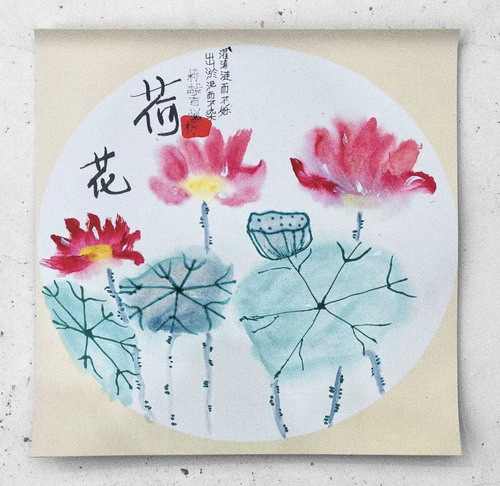 荷花
濯清涟而不妖
出淤泥而不染